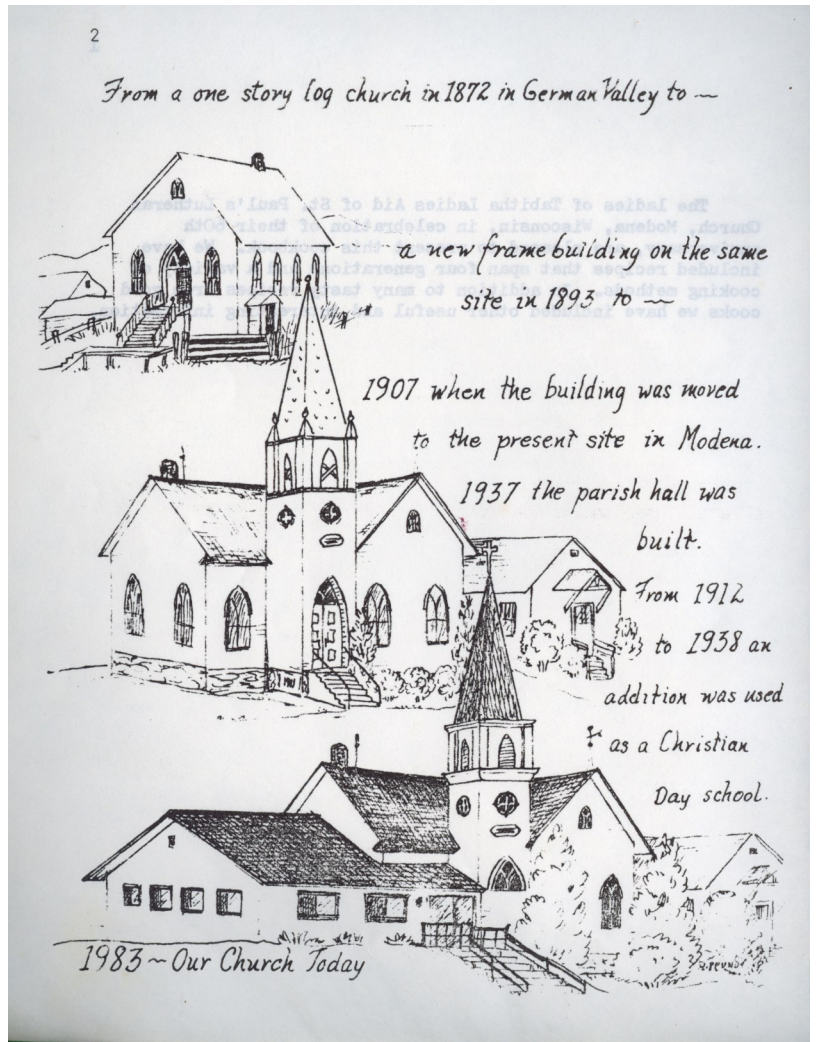 2
From a one story log church in 1872 in German Valley to ~
a new frame building on the same
site in 1893 to ~
1907 when the building was moved
to the present site in Modena.
1937 the parish hall was
built.
From 1912
to 1938 an
addition was used
as a Christian
Day school.
1983 ~ Our Church Today